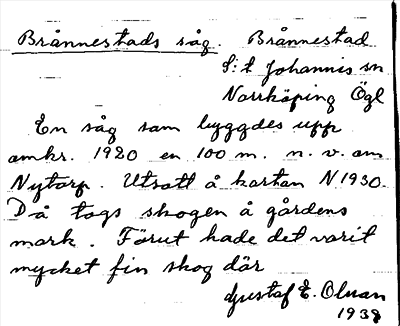 Brånnestads såg. Brånnestad
S:t Johannis sn
Norrköping Ögl
En såg som byggdes upp
omkr. 1920 en 100 m. n. v. om
Nytorp. Utsatt å kartan N 1930.
Då togs skogen å gårdens
mark. Förut hade det varit
mycket fin skog där
Gustaf E. Olsson
1938